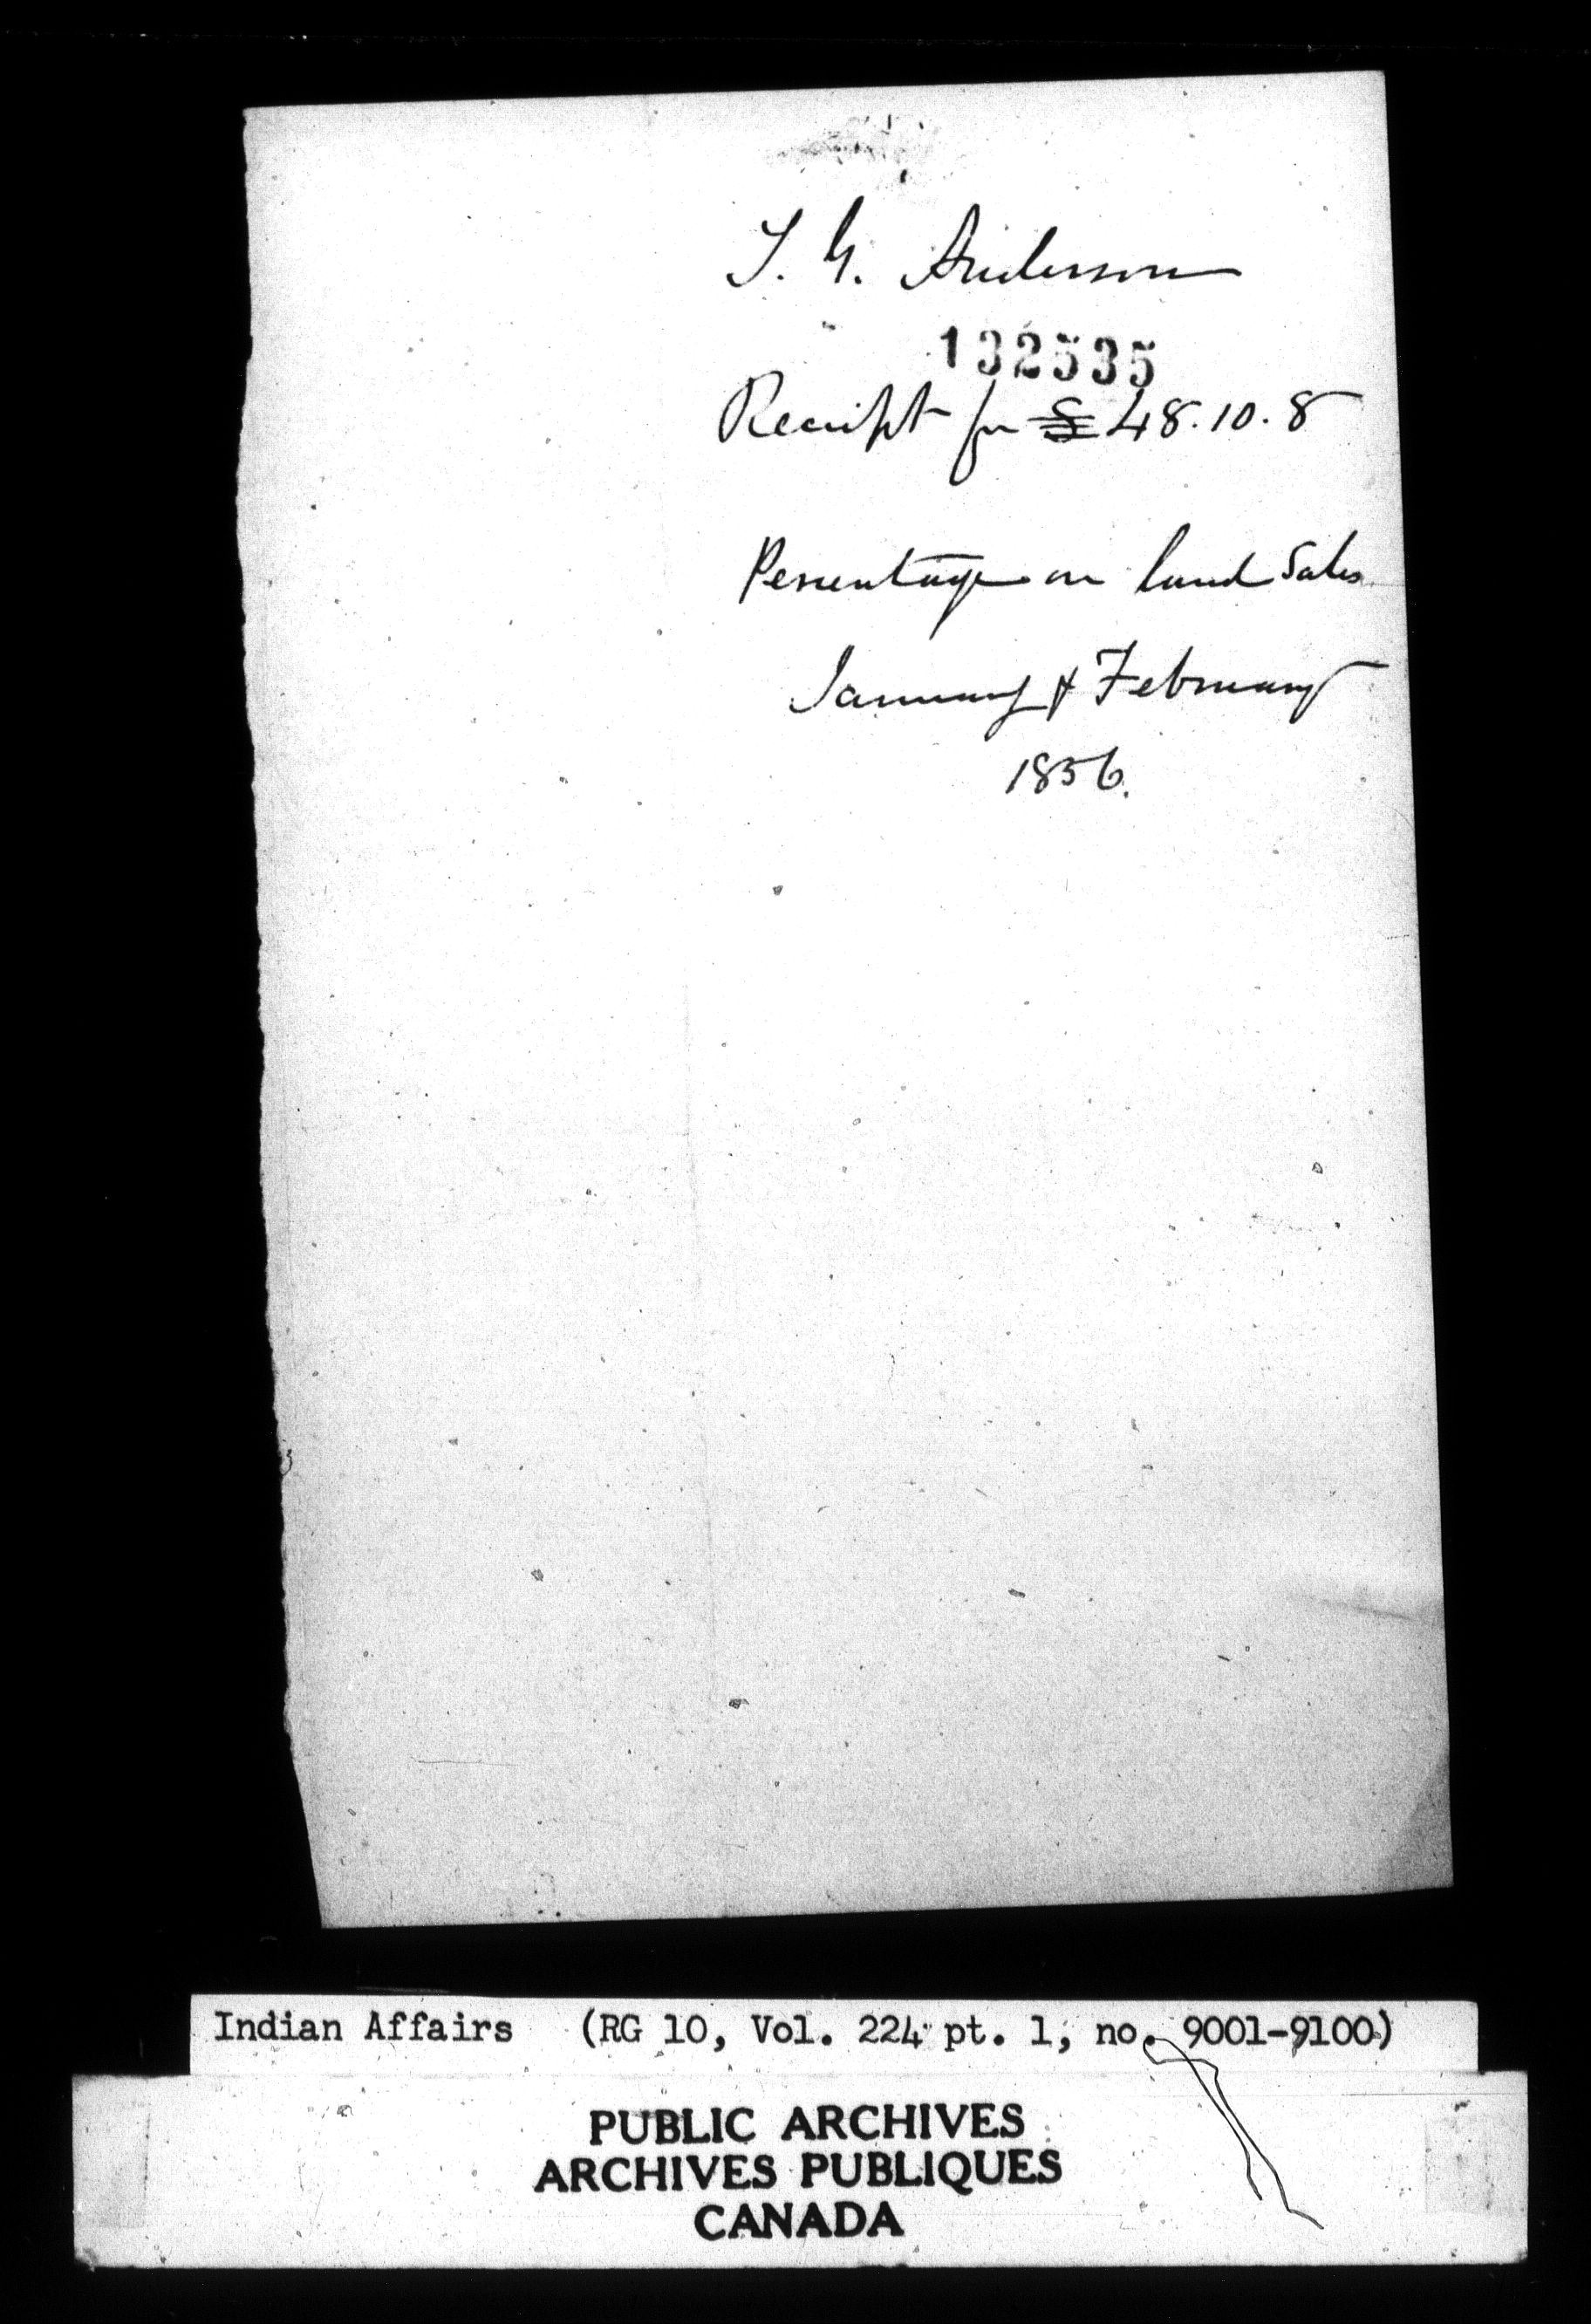 T. G. Anderson
132535
Receipt for £48.10.8
Percentage on land Sales
January & February
1856.
Indian Affairs (RG 10, Vol. 224 pt. 1, no. 9001-9100)
PUBLIC ARCHIVES
ARCHIVES PUBLIQUES
CANADA